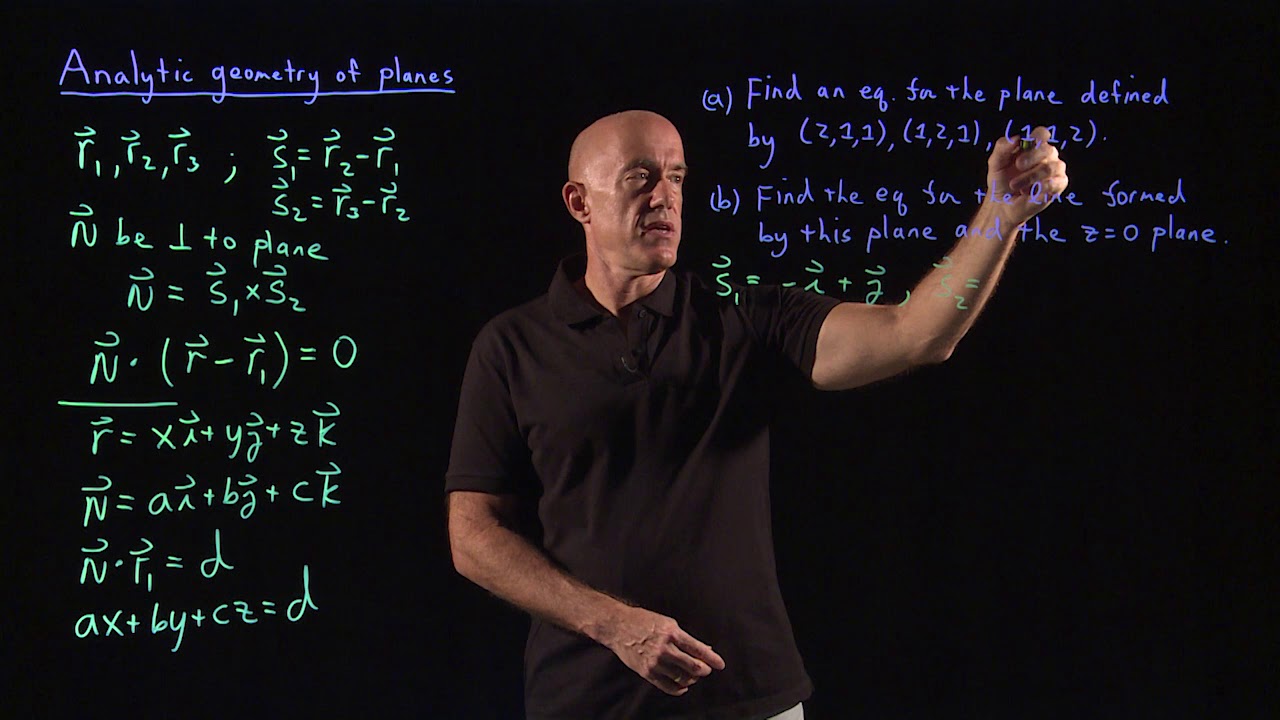 Analytic geometry of planes
r⃗₁, r⃗₂, r⃗₃ ; s⃗₁ = r⃗₂ − r⃗₁
s⃗₂ = r⃗₃ − r⃗₂
N⃗ be ⊥ to plane
N⃗ = s⃗₁ × s⃗₂
N⃗ · (r⃗ − r⃗₁) = 0
r⃗ = xi⃗ + yj⃗ + zk⃗
N⃗ = ai⃗ + bj⃗ + ck⃗
N⃗ · r⃗₁ = d
ax + by + cz = d
(a) Find an eq. for the plane defined
by (2,1,1), (1,2,1), (1,1,2).
(b) Find the eq for the line formed
by this plane and the z=0 plane.
s⃗₁ = −i⃗ + j⃗ , s⃗₂ =